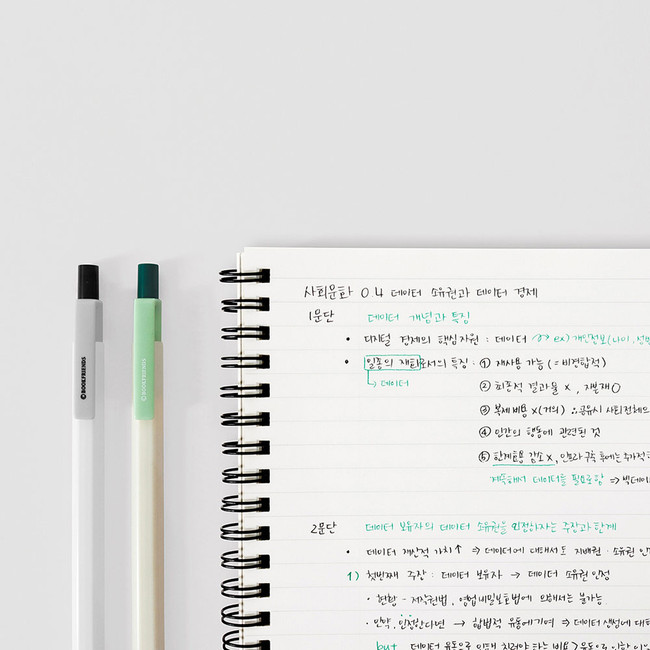 사회문화 0.4 데이터 소유권과 데이터 경제
1문단 데이터 개념과 특징
• 디지털 경제의 핵심자원 : 데이터 ex) 개인정보(나이, 성별
• 일종의 재화로서의 특징 : ① 재사용 가능 (=비경합적)
→ 데이터
② 최종적 결과물 x, 자본재 O
③ 복제비용 x(거의) ∴공유시 사회전체의
④ 인간의 행동에 관련된 것
⑤ 한계효용 감소 x, 인프라 구축 후에는 추가적
계속해서 데이터를 필요로 함 ⇒ 빅데이
2문단 데이터 보유자의 데이터 소유권을 인정하자는 주장과 한계
• 데이터 재산적 가치↑ ⇒ 데이터에 대해서도 지배권·소유권 인
1) 첫번째 주장 : 데이터 보유자 → 데이터 소유권 인정
• 현황 - 저작권법, 영업비밀보호법에 의해서는 불가능.
• 만약, 인정한다면 → 합법적 유통에 기여 ⇒ 데이터 생성에 대
but 데이터 유통으로 인해 치러야 하는 비용 > 유통으로 인한 이
©BOOKFRIENDS
©BOOKFRIENDS